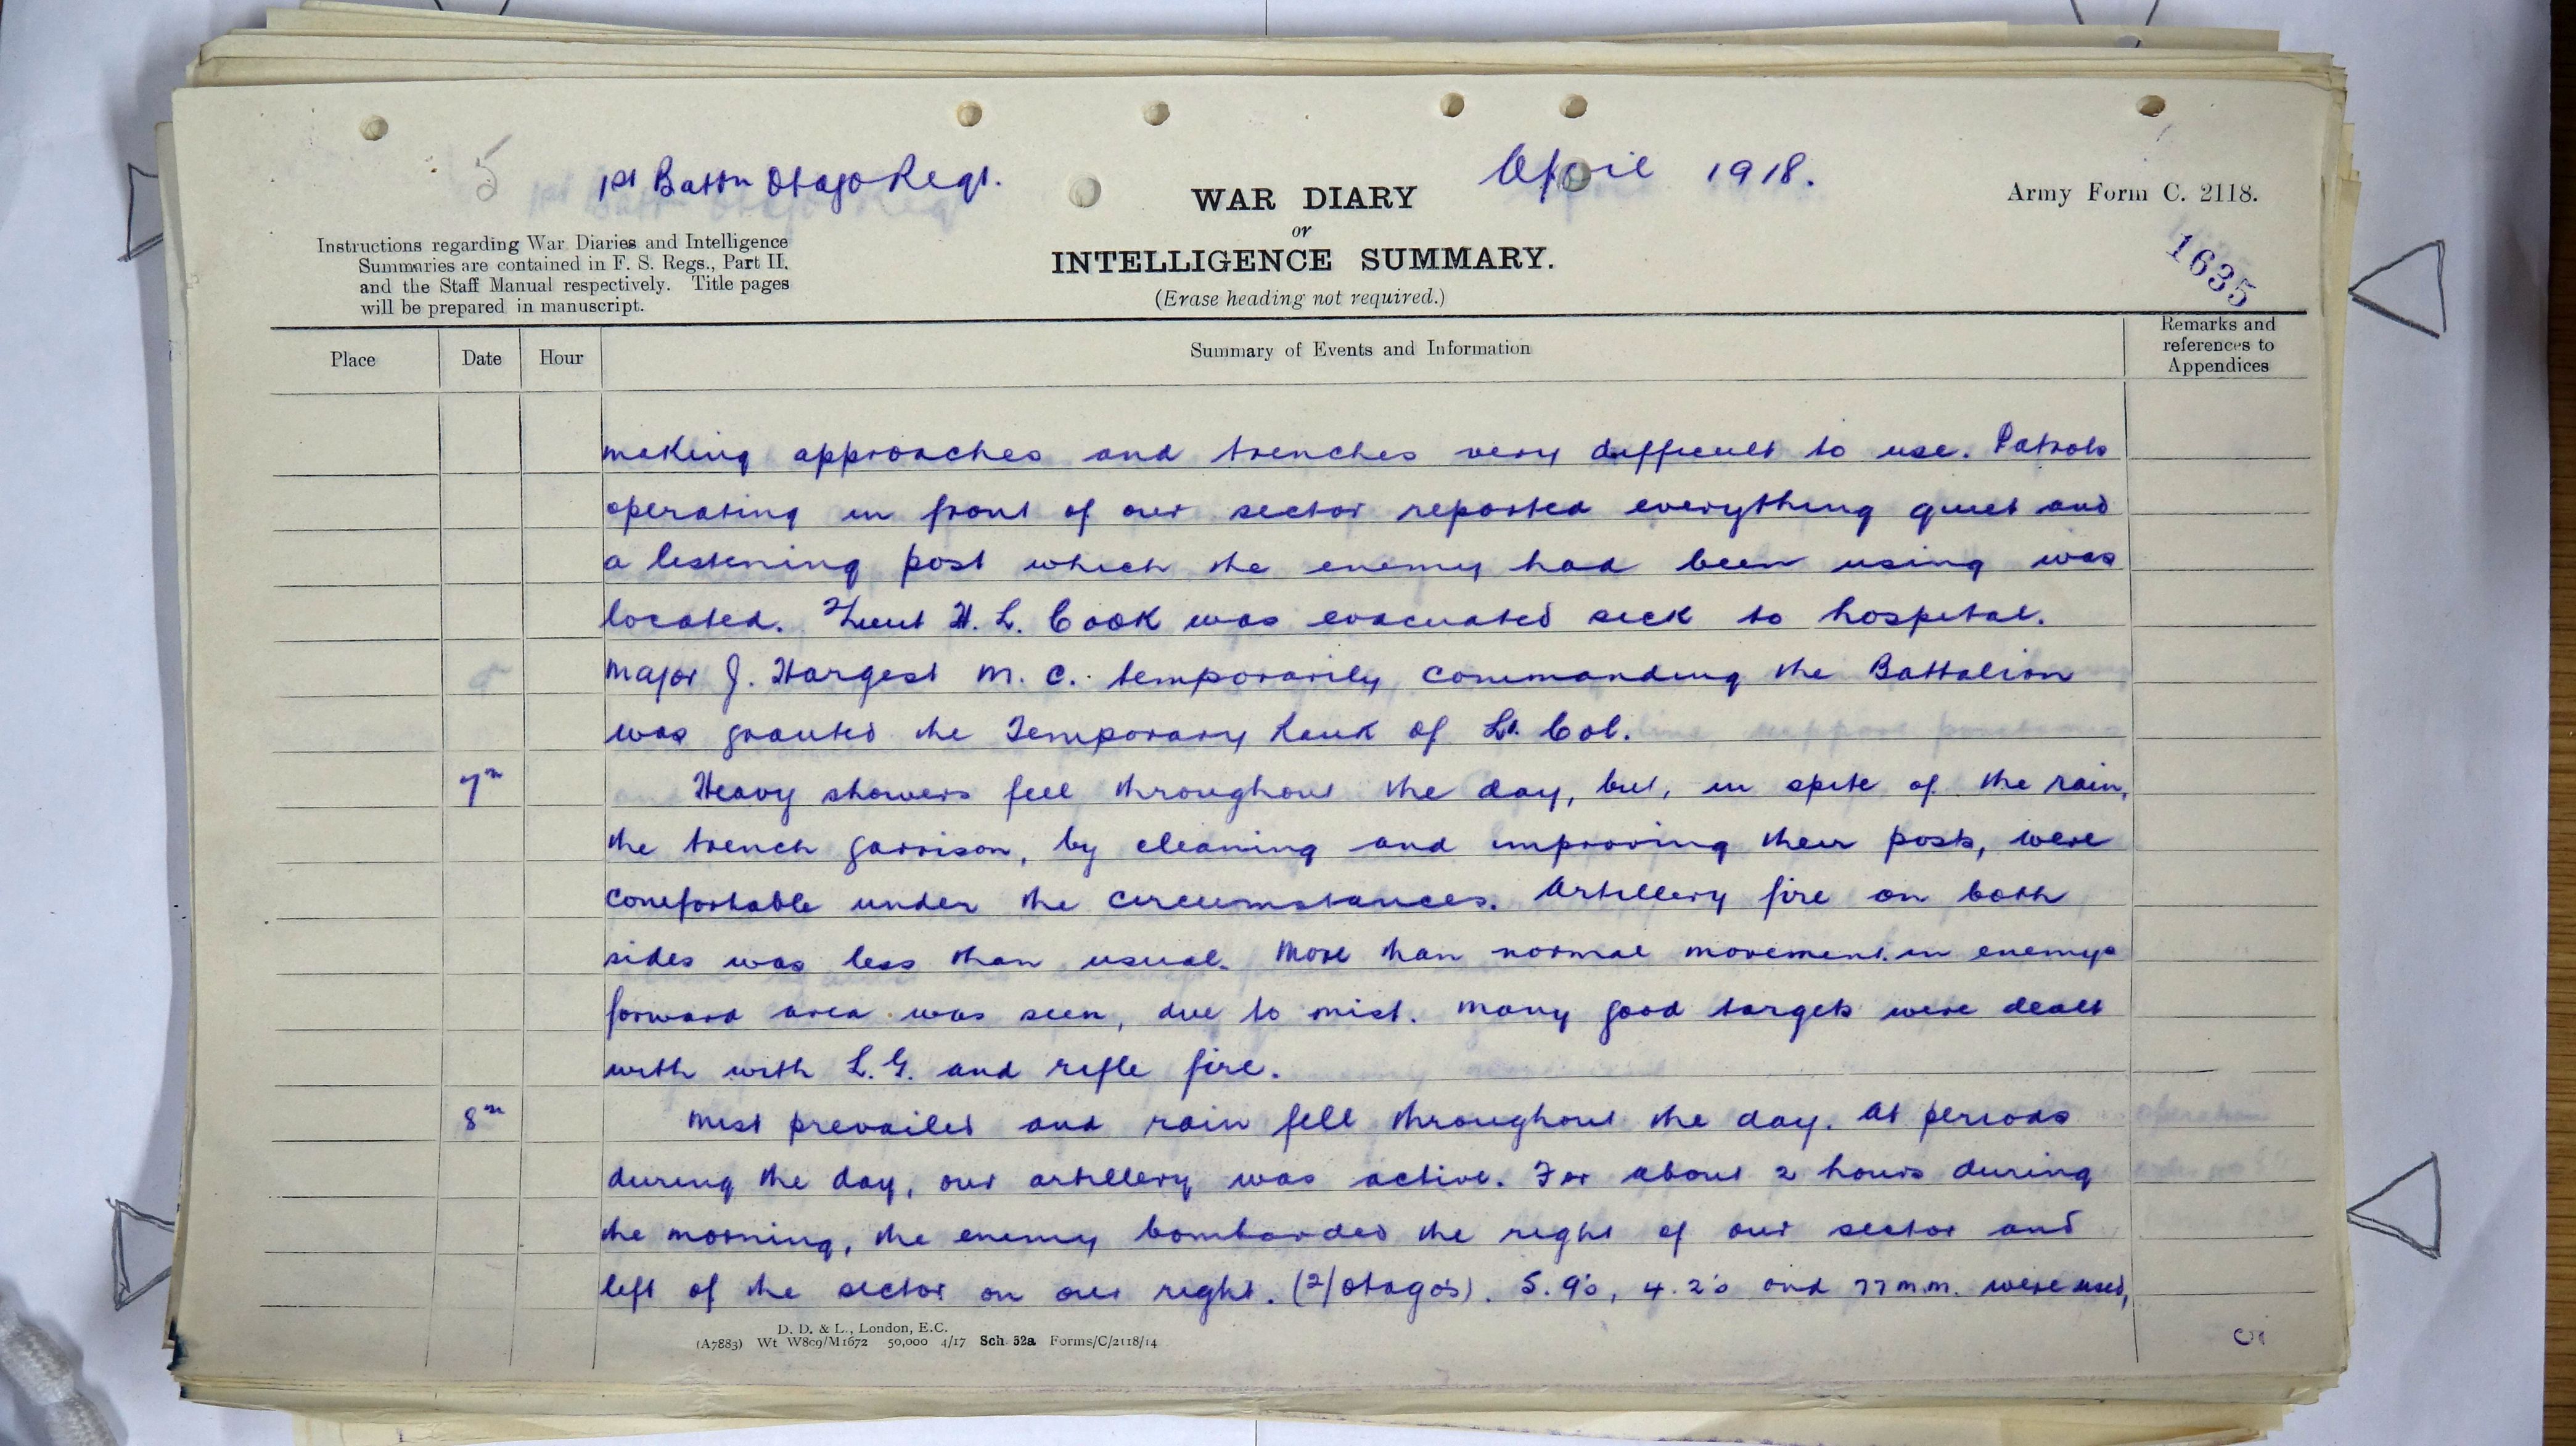 5
1st Battn Otago Regt.
April 1918.
WAR DIARY
or
INTELLIGENCE SUMMARY.
(Erase heading not required.)
Army Form C. 2118.
1635
Instructions regarding War Diaries and Intelligence
Summaries are contained in F. S. Regs., Part II.
and the Staff Manual respectively. Title pages
will be prepared in manuscript.
Place Date Hour Summary of Events and Information Remarks and
references to
Appendices
making approaches and trenches very difficult to use. Patrols
operating in front of our sector reported everything quiet and
a listening post which the enemy had been using was
located. 2/Lieut H. L. Cook was evacuated sick to hospital.
Major J. Hargest M. C. temporarily commanding the Battalion
was granted the Temporary Rank of Lt. Col.
7th Heavy showers fell throughout the day, but, in spite of the rain,
the trench garrison, by cleaning and improving their posts, were
comfortable under the circumstances. Artillery fire on both
sides was less than usual. More than normal movement in enemys
forward area was seen, due to mist. Many good targets were dealt
with with L.G. and rifle fire.
8th Mist prevailed and rain fell throughout the day. At periods
during the day, our artillery was active. For about 2 hours during
the morning, the enemy bombarded the right of our sector and
left of the sector on our right. (2/Otago's). 5.9's, 4.2's and 77 m.m. were used,
D. D. & L., London, E.C.
(A7883) Wt W809/M1672 50,000 4/17 Sch 52a Forms/C/2118/14